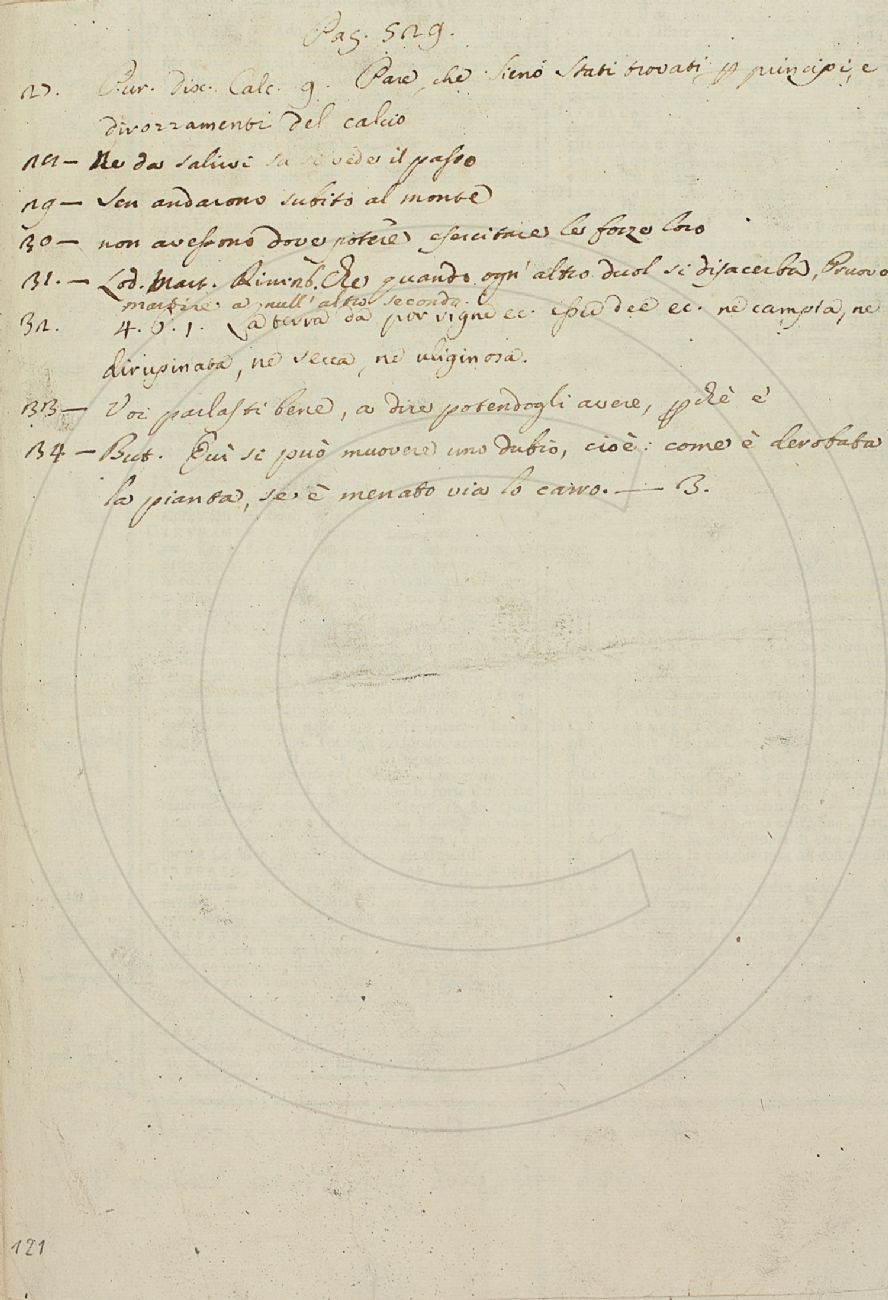 Pag. 529.
27. Pur. Disc. Calc. 9. Pare, che sieno stati trovati p principi, e
divozzamenti del calcio
28 — Ne da salirvi su si vede il passo
29 — Sen andarono subito al monte
30 — non avessono dove potere esercitare le forze loro
31. — Lod. Mart. Rim. Che quando ogn' altro duol si disacerba, Pruovo
martire a null' altro secondo.
32. 4. 6. 1. La terra da por vigne ec. esser dee ec. nè campía, nè
dirupinata, nè secca, nè uliginosa.
33 — Voi parlasti bene, a dire potendogli avere, pchè è
34 — But. Quì si può muovere uno dubio, cioè: come è derobata
la pianta, se è menato via lo carro. — 3.
121